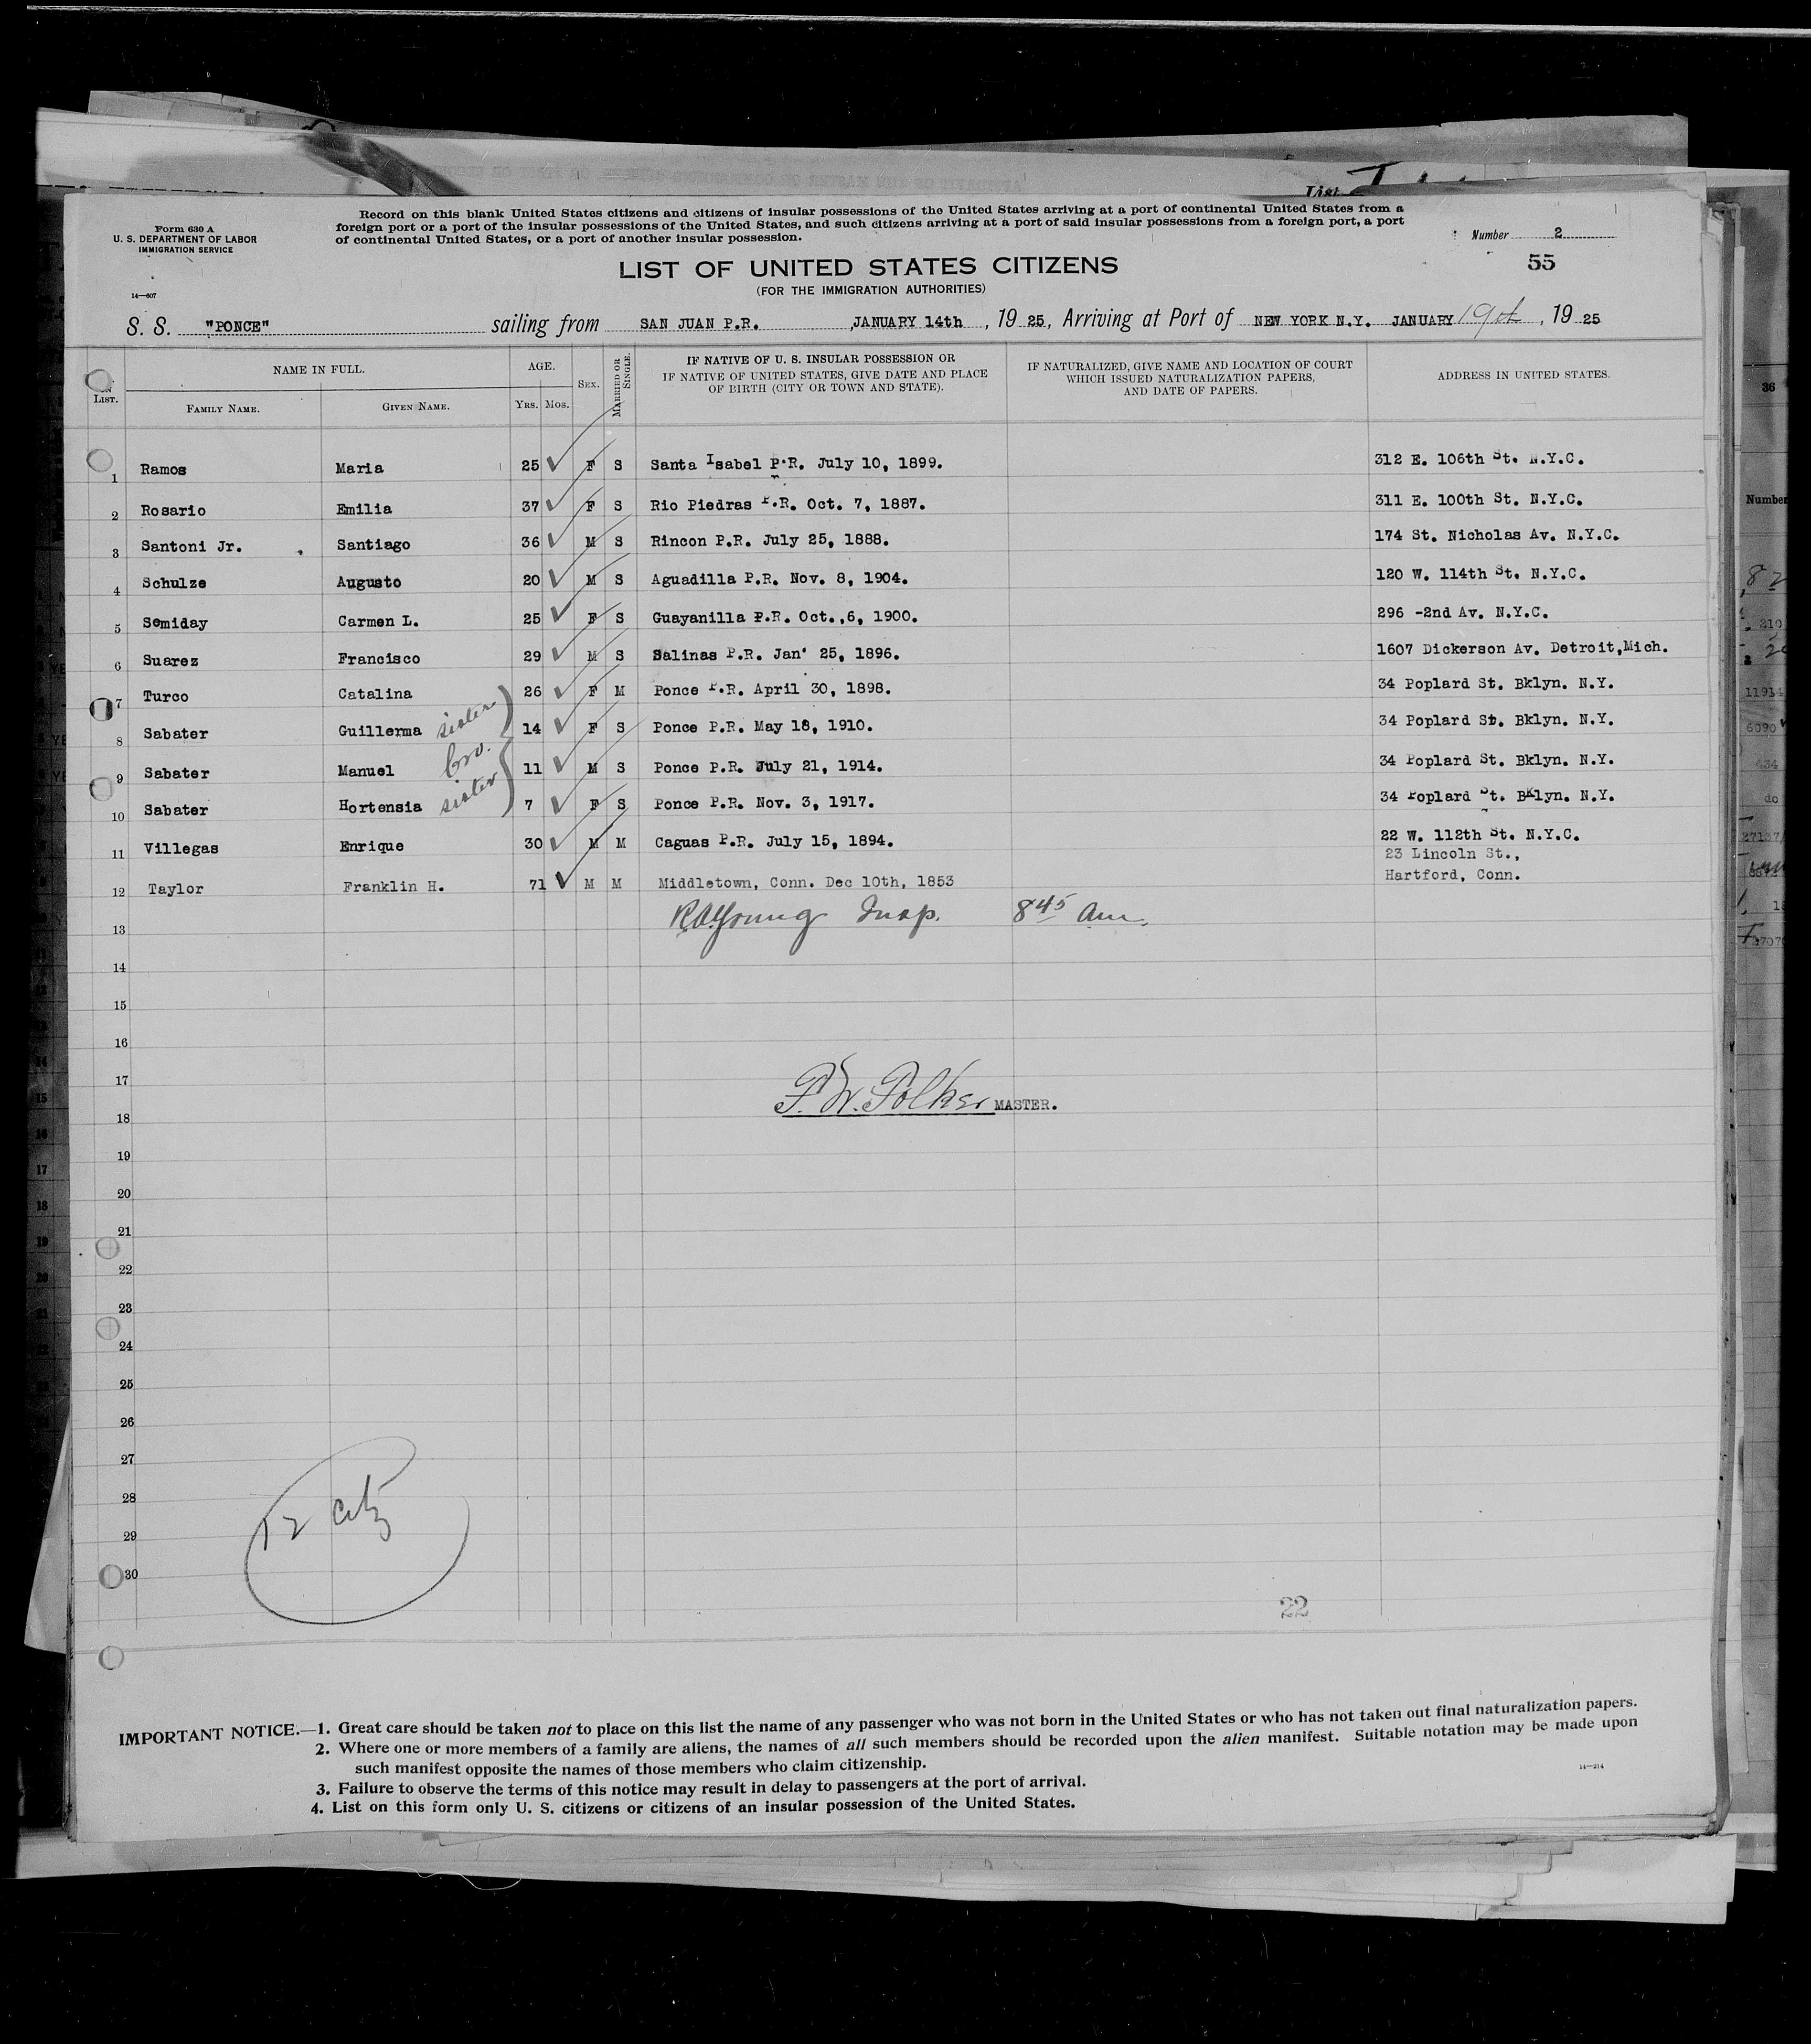 Form 630 A
U. S. DEPARTMENT OF LABOR
IMMIGRATION SERVICE
14—607
Record on this blank United States citizens and citizens of insular possessions of the United States arriving at a port of continental United States from a
foreign port or a port of the insular possessions of the United States, and such citizens arriving at a port of said insular possessions from a foreign port, a port
of continental United States, or a port of another insular possession.
List
Number 2
55
LIST OF UNITED STATES CITIZENS
(FOR THE IMMIGRATION AUTHORITIES)
S. S. "PONCE" sailing from SAN JUAN P.R. ,JANUARY 14th , 19 25, Arriving at Port of NEW YORK N.Y. JANUARY 19th , 19 25
LIST. NAME IN FULL. FAMILY NAME. GIVEN NAME. AGE. YRS. MOS. SEX. MARRIED OR SINGLE. IF NATIVE OF U. S. INSULAR POSSESSION OR IF NATIVE OF UNITED STATES, GIVE DATE AND PLACE OF BIRTH (CITY OR TOWN AND STATE). IF NATURALIZED, GIVE NAME AND LOCATION OF COURT WHICH ISSUED NATURALIZATION PAPERS, AND DATE OF PAPERS. ADDRESS IN UNITED STATES.
1 Ramos Maria 25 F S Santa Isabel P.R. July 10, 1899. 312 E. 106th St. N.Y.C.
2 Rosario Emilia 37 F S Rio Piedras P.R. Oct. 7, 1887. 311 E. 100th St. N.Y.C.
3 Santoni Jr. Santiago 36 M S Rincon P.R. July 25, 1888. 174 St. Nicholas Av. N.Y.C.
4 Schulze Augusto 20 M S Aguadilla P.R. Nov. 8, 1904. 120 W. 114th St. N.Y.C.
5 Semiday Carmen L. 25 F S Guayanilla P.R. Oct.,6, 1900. 296 -2nd Av. N.Y.C.
6 Suarez Francisco 29 M S Salinas P.R. Jan' 25, 1896. 1607 Dickerson Av. Detroit,Mich.
7 Turco Catalina 26 F M Ponce P.R. April 30, 1898. 34 Poplard St. Bklyn. N.Y.
8 Sabater Guillerma sister 14 F S Ponce P.R. May 18, 1910. 34 Poplard St. Bklyn. N.Y.
9 Sabater Manuel bro. 11 M S Ponce P.R. July 21, 1914. 34 Poplard St. Bklyn. N.Y.
10 Sabater Hortensia sister 7 F S Ponce P.R. Nov. 3, 1917. 34 Poplard St. Bklyn. N.Y.
11 Villegas Enrique 30 M M Caguas P.R. July 15, 1894. 22 W. 112th St. N.Y.C.
12 Taylor Franklin H. 71 M M Middletown, Conn. Dec 10th, 1853 23 Lincoln St., Hartford, Conn.
13 RA Young Insp. 8 45 am.
14
15
16
17
F. W. Polker MASTER.
18
19
20
21
22
23
24
25
26
27
28
29
30
12 citz
22
IMPORTANT NOTICE.—1. Great care should be taken not to place on this list the name of any passenger who was not born in the United States or who has not taken out final naturalization papers.
2. Where one or more members of a family are aliens, the names of all such members should be recorded upon the alien manifest. Suitable notation may be made upon
such manifest opposite the names of those members who claim citizenship.
3. Failure to observe the terms of this notice may result in delay to passengers at the port of arrival.
4. List on this form only U. S. citizens or citizens of an insular possession of the United States.
14—214